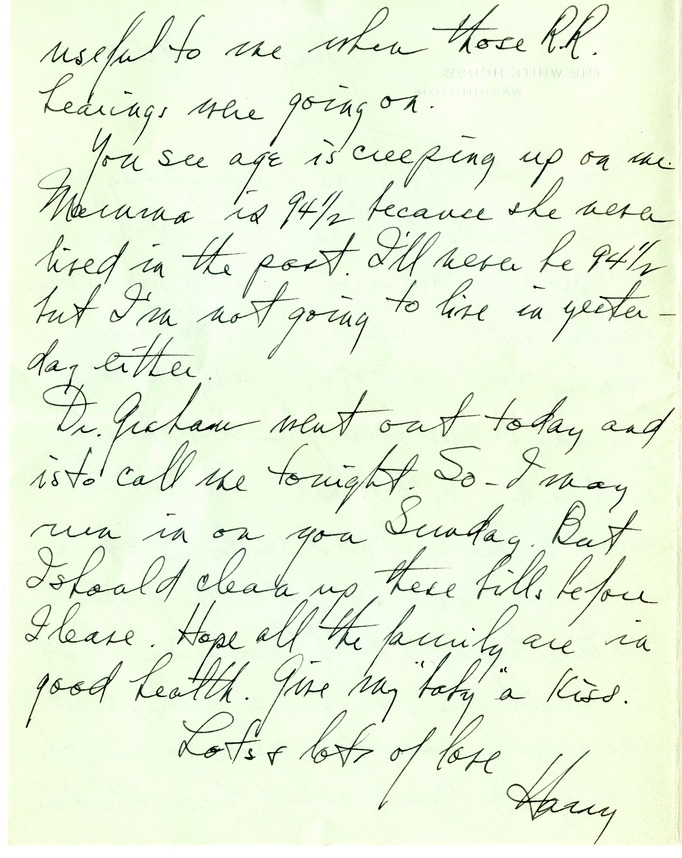 useful to me when those R.R.
THE WHITE HOUSE
WASHINGTON
hearings were going on.
You see age is creeping up on me.
Mamma is 94½ because she never
lived in the past. I'll never be 94½
but I'm not going to live in yester-
day either.
Dr. Graham went out today and
is to call me tonight. So - I may
run in on you Sunday. But
I should clean up these bills before
I leave. Hope all the family are in
good health. Give my "baby" a kiss.
Lots & lots of love
Harry